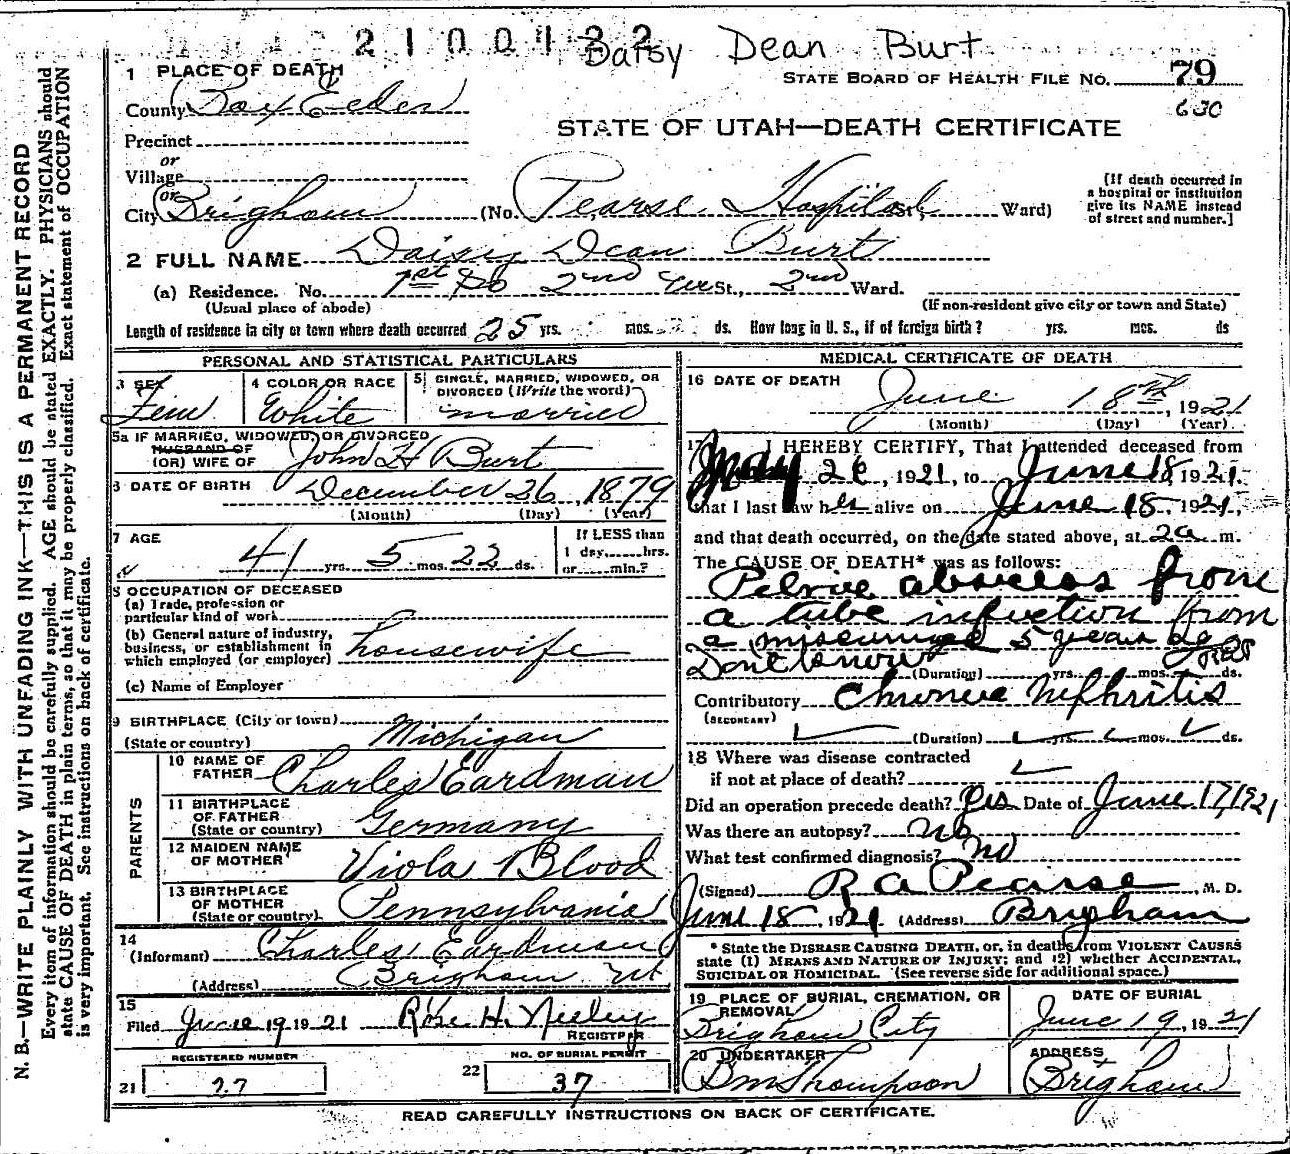 2100122
Daisy Dean Burt
1 PLACE OF DEATH
STATE BOARD OF HEALTH FILE NO. 79
County Box Elder
630
STATE OF UTAH—DEATH CERTIFICATE
Precinct
or
Village
or
City Brigham (No. Pearse Hospital St., Ward)
[If death occurred in
a hospital or institution
give its NAME instead
of street and number.]
2 FULL NAME Daisy Dean Burt
(a) Residence. No. 1st So 2nd St., 2nd Ward.
(Usual place of abode) (If non-resident give city or town and State)
Length of residence in city or town where death occurred 25 yrs. mos. ds. How long in U. S., if of foreign birth? yrs. mos. ds
PERSONAL AND STATISTICAL PARTICULARS
3 SEX
Fem
4 COLOR OR RACE
White
5 SINGLE, MARRIED, WIDOWED, OR
DIVORCED (Write the word)
married
5a IF MARRIED, WIDOWED, OR DIVORCED
HUSBAND OF
(OR) WIFE OF John H Burt
6 DATE OF BIRTH December 26, 1879
(Month) (Day) (Year)
7 AGE
41 yrs. 5 mos. 22 ds.
If LESS than
1 day, hrs.
or min.?
8 OCCUPATION OF DECEASED
(a) Trade, profession or
particular kind of work
(b) General nature of industry,
business, or establishment in
which employed (or employer) housewife
(c) Name of Employer
9 BIRTHPLACE (City or town)
(State or country) Michigan
PARENTS
10 NAME OF
FATHER Charles Eardman
11 BIRTHPLACE
OF FATHER
(State or country) Germany
12 MAIDEN NAME
OF MOTHER Viola Blood
13 BIRTHPLACE
OF MOTHER
(State or country) Pennsylvania
14
(Informant) Charles Eardman
(Address) Brigham Ut
15
Filed June 19 1921 Rose H. Neeley
REGISTRAR
REGISTERED NUMBER
21 27
NO. OF BURIAL PERMIT
22 37
MEDICAL CERTIFICATE OF DEATH
16 DATE OF DEATH
June 18th, 1921
(Month) (Day) (Year)
17 I HEREBY CERTIFY, That I attended deceased from
May 26, 1921, to June 18, 1921,
that I last saw her alive on June 18, 1921,
and that death occurred, on the date stated above, at 2a m.
The CAUSE OF DEATH* was as follows:
Pelvic abscess from
a tube infection from
a miscarriage 5 years ago
Dont know (Duration) yrs. mos. ds.
Contributory Chronic Nephritis
(SECONDARY)
(Duration) yrs. mos. ds.
18 Where was disease contracted
if not at place of death?
Did an operation precede death? yes Date of June 17, 1921
Was there an autopsy? no
What test confirmed diagnosis? no
(Signed) R A Pearse, M. D.
June 18, 1921 (Address) Brigham
* State the DISEASE CAUSING DEATH, or, in deaths from VIOLENT CAUSES
state (1) MEANS AND NATURE OF INJURY; and (2) whether ACCIDENTAL,
SUICIDAL OR HOMICIDAL. (See reverse side for additional space.)
19 PLACE OF BURIAL, CREMATION, OR
REMOVAL
Brigham City
DATE OF BURIAL
June 19, 1921
20 UNDERTAKER
B M Thompson
ADDRESS
Brigham
READ CAREFULLY INSTRUCTIONS ON BACK OF CERTIFICATE.
N. B.—WRITE PLAINLY WITH UNFADING INK—THIS IS A PERMANENT RECORD
Every item of information should be carefully supplied. AGE should be stated EXACTLY. PHYSICIANS should
state CAUSE OF DEATH in plain terms, so that it may be properly classified. Exact statement of OCCUPATION
is very important. See instructions on back of certificate.